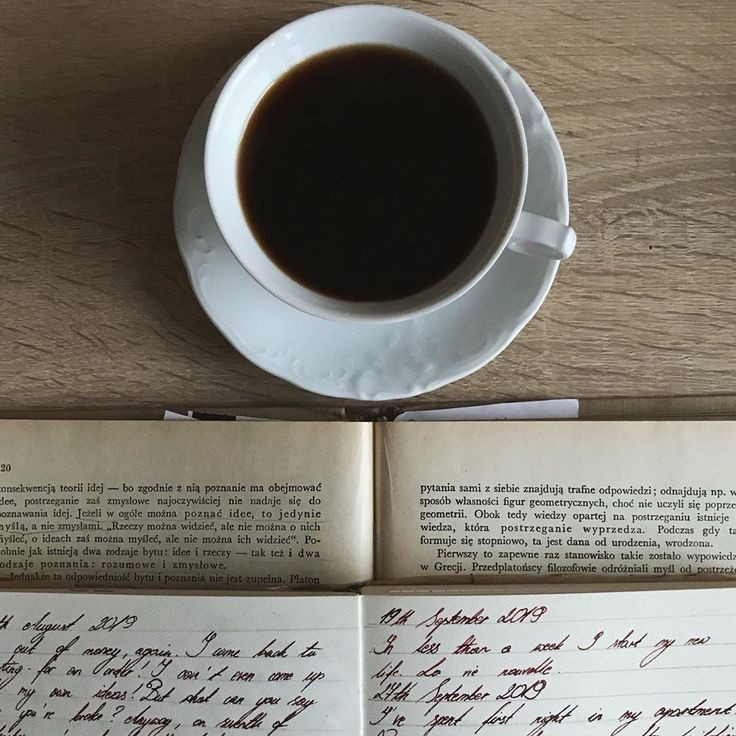 20
konsekwencją teorii idej — bo zgodnie z nią poznanie ma obejmować
idee, postrzeganie zaś zmysłowe najoczywiściej nie nadaje się do
poznawania idej. Jeżeli w ogóle można poznać idee, to jedynie
myślą, a nie zmysłami. „Rzeczy można widzieć, ale nie można o nich
myśleć, o ideach zaś można myśleć, ale nie można ich widzieć“. Po-
dobnie jak istnieją dwa rodzaje bytu: idee i rzeczy — tak też i dwa
rodzaje poznania: rozumowe i zmysłowe.
Jednakże ta odpowiedniość bytu i poznania nie jest zupełna. Platon
pytania sami z siebie znajdują trafne odpowiedzi; odnajdują np. w
sposób własności figur geometrycznych, choć nie uczyli się poprze
geometrii. Obok tedy wiedzy opartej na postrzeganiu istnieje
wiedza, która postrzeganie wyprzedza. Podczas gdy ta
formuje się stopniowo, ta jest dana od urodzenia, wrodzona.
Pierwszy to zapewne raz stanowisko takie zostało wypowiedz
w Grecji. Przedplatońscy filozofowie odróżniali myśl od postrzeże
th August 2019
out of money, again. I came back to
ting - for an order! I can't even come up
my own ideas! But what can you say
you're broke? Anyway, on
19th September 2019
In less than a week I start my new
life. La vie nouvelle.
27th September 2019
I've spent first night in my apartment!